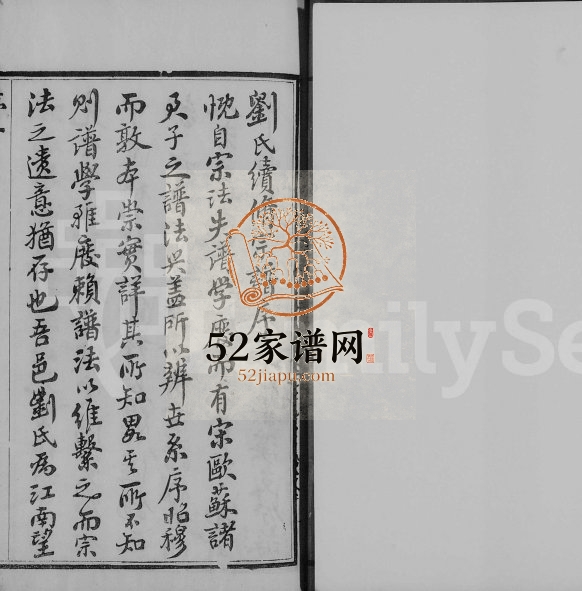 劉氏續修宗譜序
慨自宗法失譜學廢而有宋歐蘇諸
君子之譜法興蓋所以辨世系序昭穆
而敦本崇實詳其所知畧其所不知
則譜學雖廢賴譜法以維繫之而宗
法之遺意猶存也吾邑劉氏為江南望
52家谱网
52jiapu.com
FamilySe